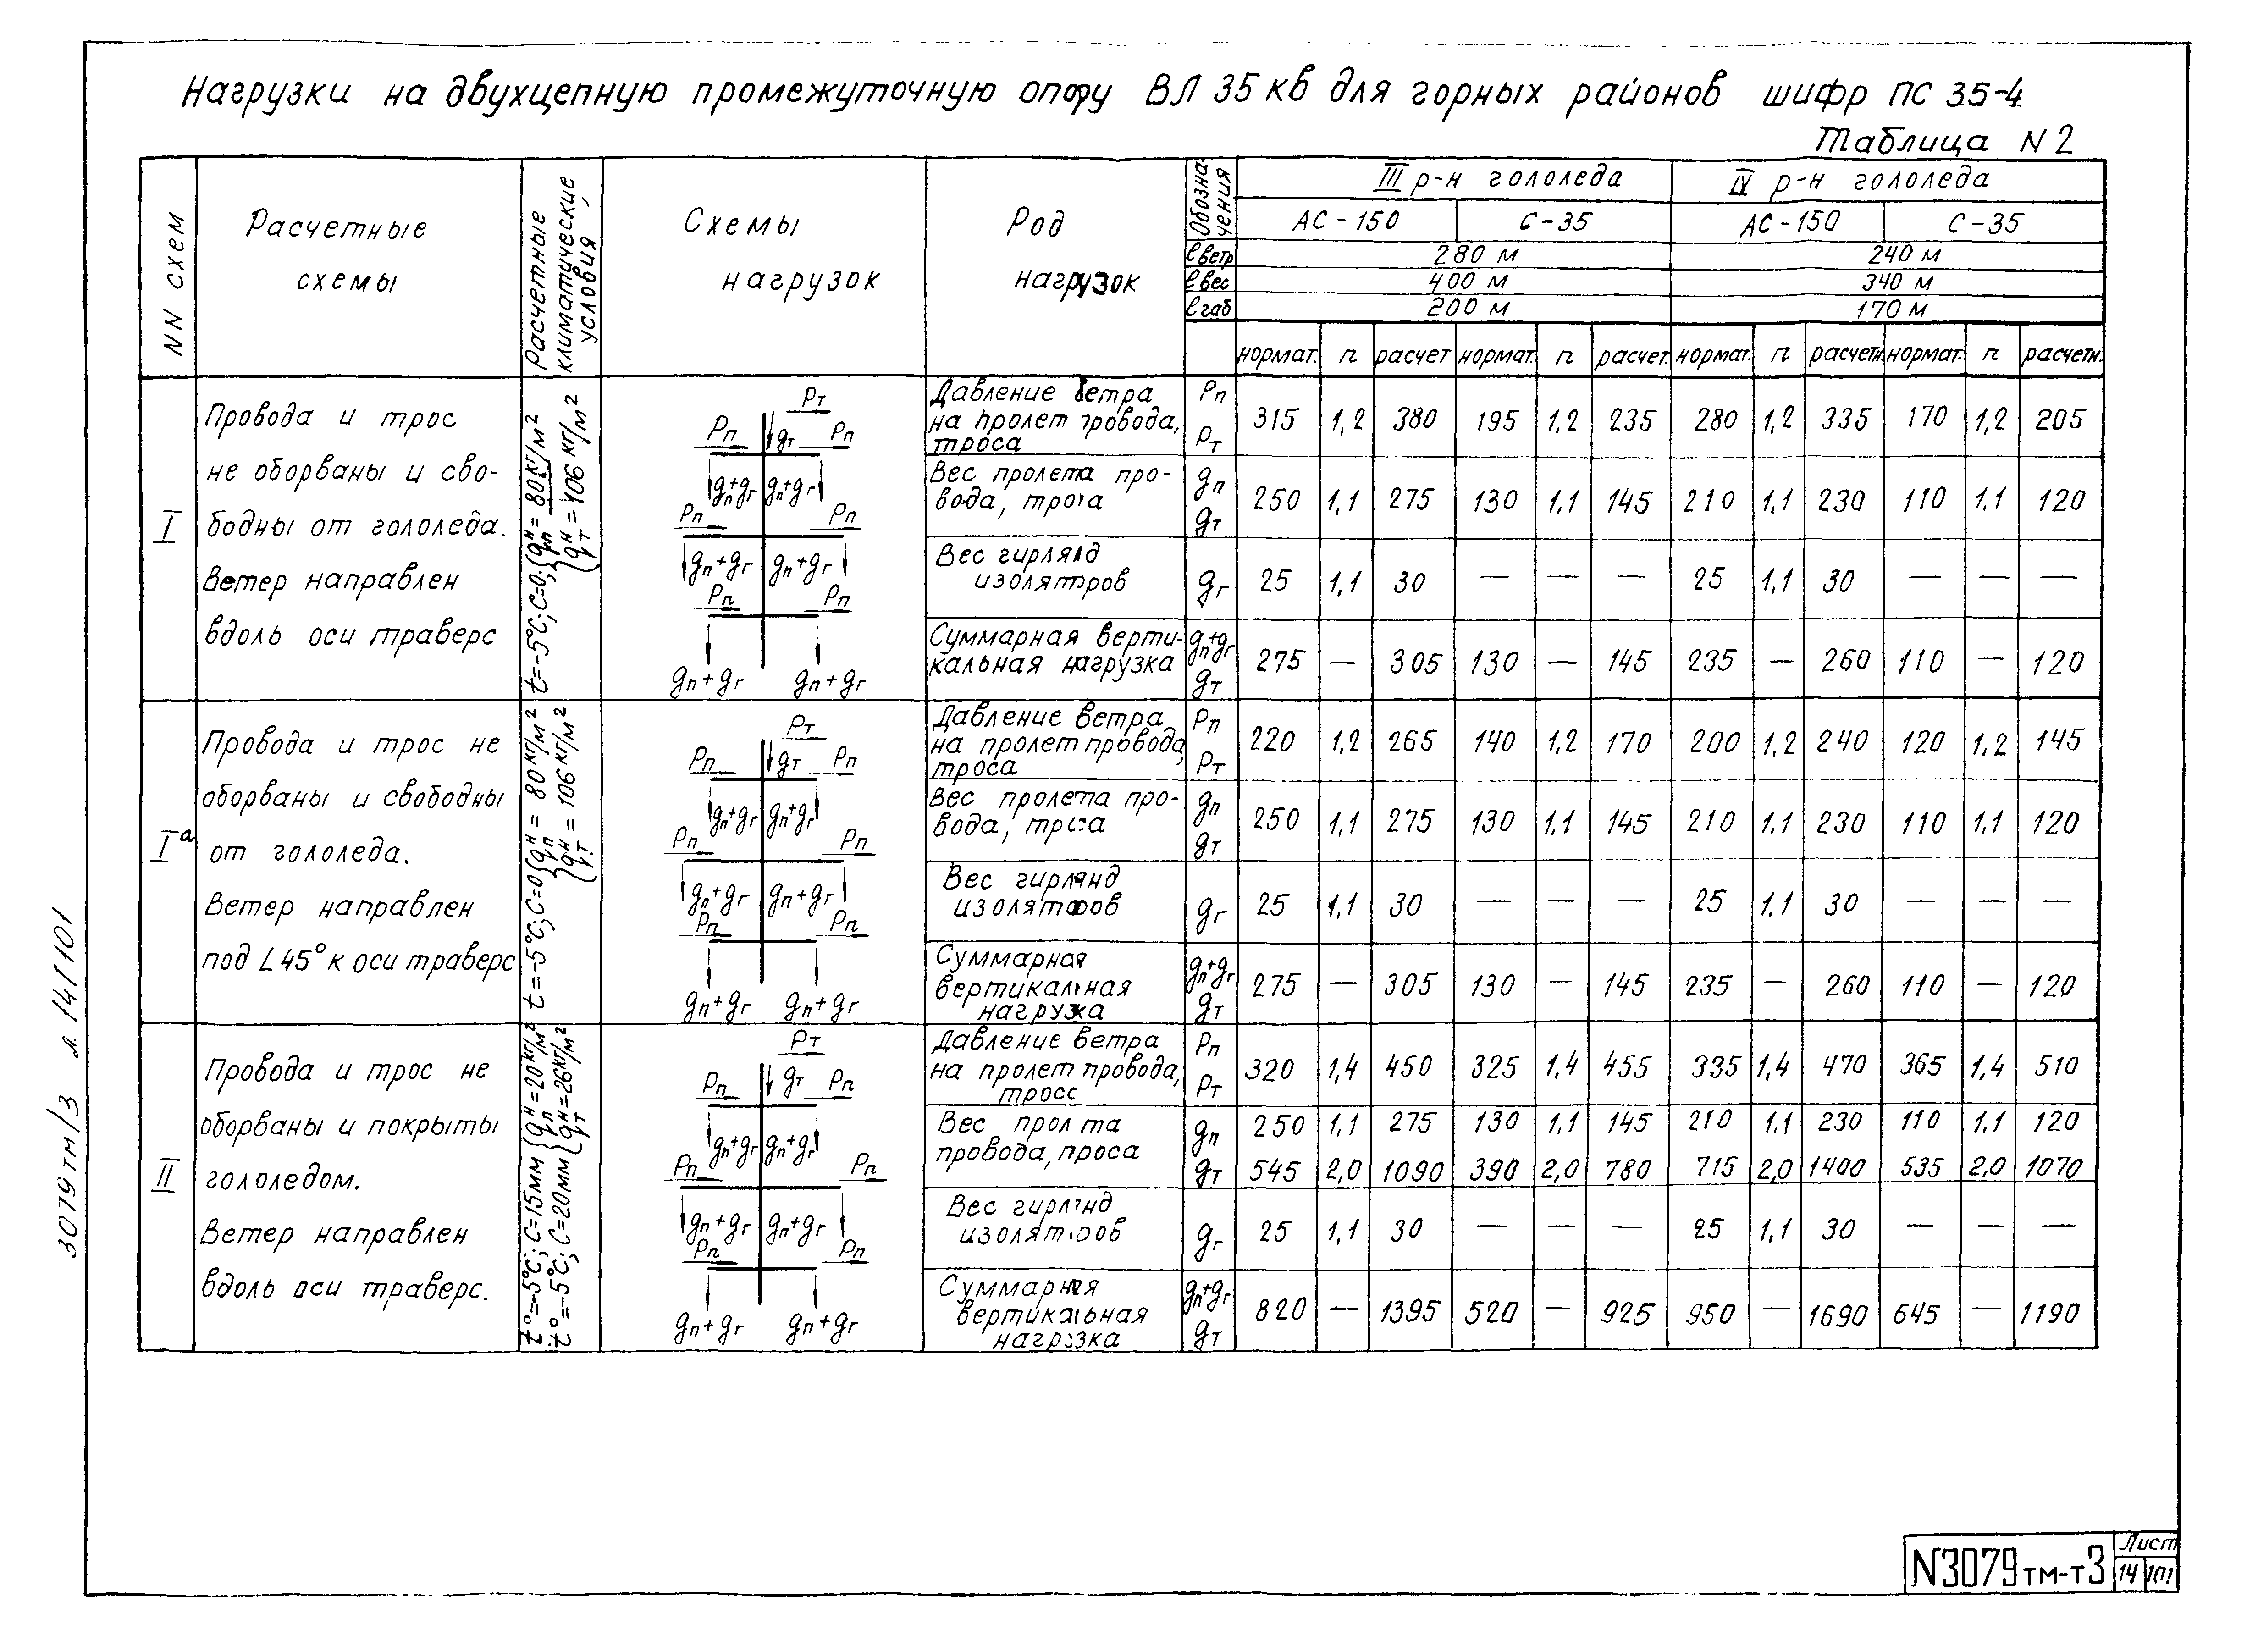 Нагрузки на двухцепную промежуточную опору ВЛ 35 кв для горных районов шифр ПС 35-4
Таблица N 2
NN схем
Расчетные
схемы
Расчетные
климатические
условия
Схемы
нагрузок
Род
нагрузок
Обозна-
чения
III р-н гололеда IV р-н гололеда
АС-150 С-35 АС-150 С-35
ℓветр 280 м 240 м
ℓвес 400 м 340 м
ℓгаб 200 м 170 м
нормат. n расчет нормат. n расчет. нормат. n расчетн. нормат. n расчетн.
I
Провода и трос
не оборваны и сво-
бодны от гололеда.
Ветер направлен
вдоль оси траверс
t=-5°C; C=0; {qпн = 80 кг/м²
{qтн = 106 кг/м²
Pт
Pп gт Pп
gп+gг gп+gг
Pп Pп
gп+gг gп+gг
Pп Pп
gп+gг gп+gг
Давление ветра
на пролет провода,
троса
Pп
Pт
315 1,2 380 195 1,2 235 280 1,2 335 170 1,2 205
Вес пролета про-
вода, троса
gп
gт
250 1,1 275 130 1,1 145 210 1,1 230 110 1,1 120
Вес гирлянд
изоляторов
gг 25 1,1 30 — — — 25 1,1 30 — — —
Суммарная верти-
кальная нагрузка
gп+gг
gт
275 — 305 130 — 145 235 — 260 110 — 120
Iа
Провода и трос не
оборваны и свободны
от гололеда.
Ветер направлен
под ∠45° к оси траверс
t=-5°C; C=0 {qпн = 80 кг/м²
{qтн = 106 кг/м²
Pт
Pп gт Pп
gп+gг gп+gг
Pп Pп
gп+gг gп+gг
Pп Pп
gп+gг gп+gг
Давление ветра
на пролет провода,
троса
Pп
Pт
220 1,2 265 140 1,2 170 200 1,2 240 120 1,2 145
Вес пролета про-
вода, троса
gп
gт
250 1,1 275 130 1,1 145 210 1,1 230 110 1,1 120
Вес гирлянд
изоляторов
gг 25 1,1 30 — — — 25 1,1 30 — — —
Суммарная
вертикальная
нагрузка
gп+gг
gт
275 — 305 130 — 145 235 — 260 110 — 120
II
Провода и трос не
оборваны и покрыты
гололедом.
Ветер направлен
вдоль оси траверс.
t°=-5°C; C=15мм {qпн=20 кг/м²
t°=-5°C; C=20мм {qтн=26кг/м²
Pт
Pп gт Pп
gп+gг gп+gг
Pп Pп
gп+gг gп+gг
Pп Pп
gп+gг gп+gг
Давление ветра
на пролет провода,
тросс
Pп
Pт
320 1,4 450 325 1,4 455 335 1,4 470 365 1,4 510
Вес прол та
провода, проса
gп 250 1,1 275 130 1,1 145 210 1,1 230 110 1,1 120
gт 545 2,0 1090 390 2,0 780 715 2,0 1400 535 2,0 1070
Вес гирлянд
изоляторов
gг 25 1,1 30 — — — 25 1,1 30 — — —
Суммарная
вертикальная
нагрузка
gп+gг
gт
820 — 1395 520 — 925 950 — 1690 645 — 1190
3079тм/3 л. 14/101
N3079тм-т3
Лист
14 101